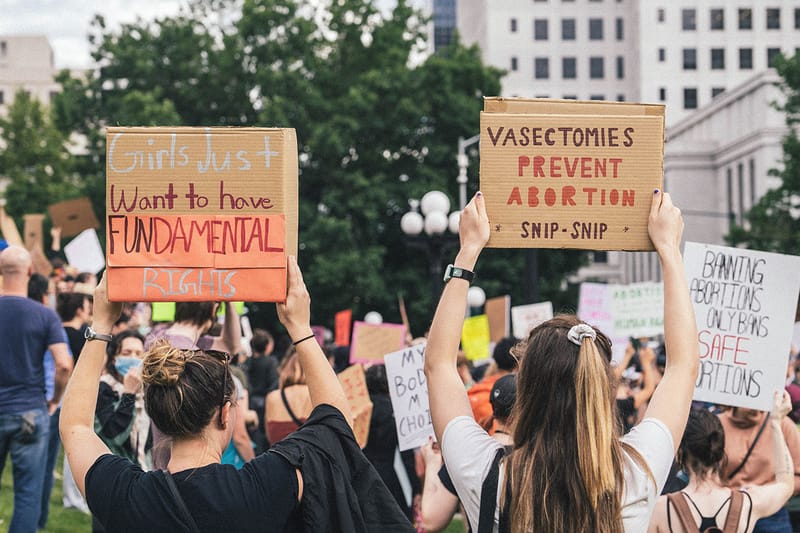 Girls Just
Want to have
FUNDAMENTAL
RIGHTS
VASECTOMIES
PREVENT
ABORTION
* SNIP-SNIP *
BANNING
ABORTIONS
ONLY BANS
SAFE
ABORTIONS
MY
BODY
MY
CHOICE
ABORTION
HUMAN